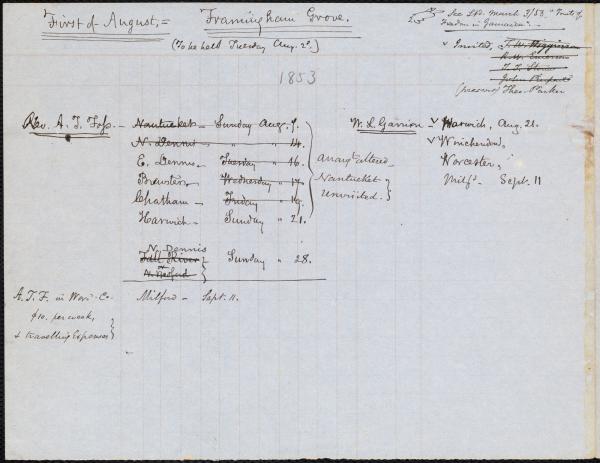 First of August, = Framingham Grove.
(To be held Tuesday Aug. 2d.)
See Lib. March 3/53. "Fruits of
Freedom in Jamaica". -
✓ Invited, T. W. Higginson
R. W. Emerson
John Pierpont
(реrsons) Theo. Parker
1853
Rev. A. T. Foss. - Nantucket - Sunday Aug. 7.
N. Dennis - " 14.
E. Dennis. - Tuesday " 16.
Brewster. Wednesday " 17.
Chatham - Friday " 19.
Harwich - Sunday " 21.
Nantucket
Unvisited.
W. L. Garrison - ✓ Harwich, Aug. 21.
✓ Winchendon,
Worcester,
Milfd. Sept. 11
N. Dennis
Fall River
or
N. Bedford
Sunday " 28.
Milford - Sept. 11.
A. T. F. in Worc. Co.
$10. per week,
& travelling Expenses